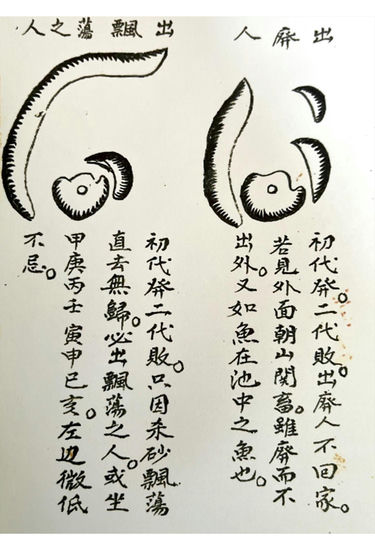 出廢人
初代發。二代敗。出廢人不回家。
若見外面朝山関畜。雖廢而不
出外。又如魚在池中之魚也。
出飄蕩之人
初代發二代敗。只因未砂飄蕩
直去無歸。必出飄蕩之人。或坐
甲庚丙壬寅申巳亥。左边微低
不忌。